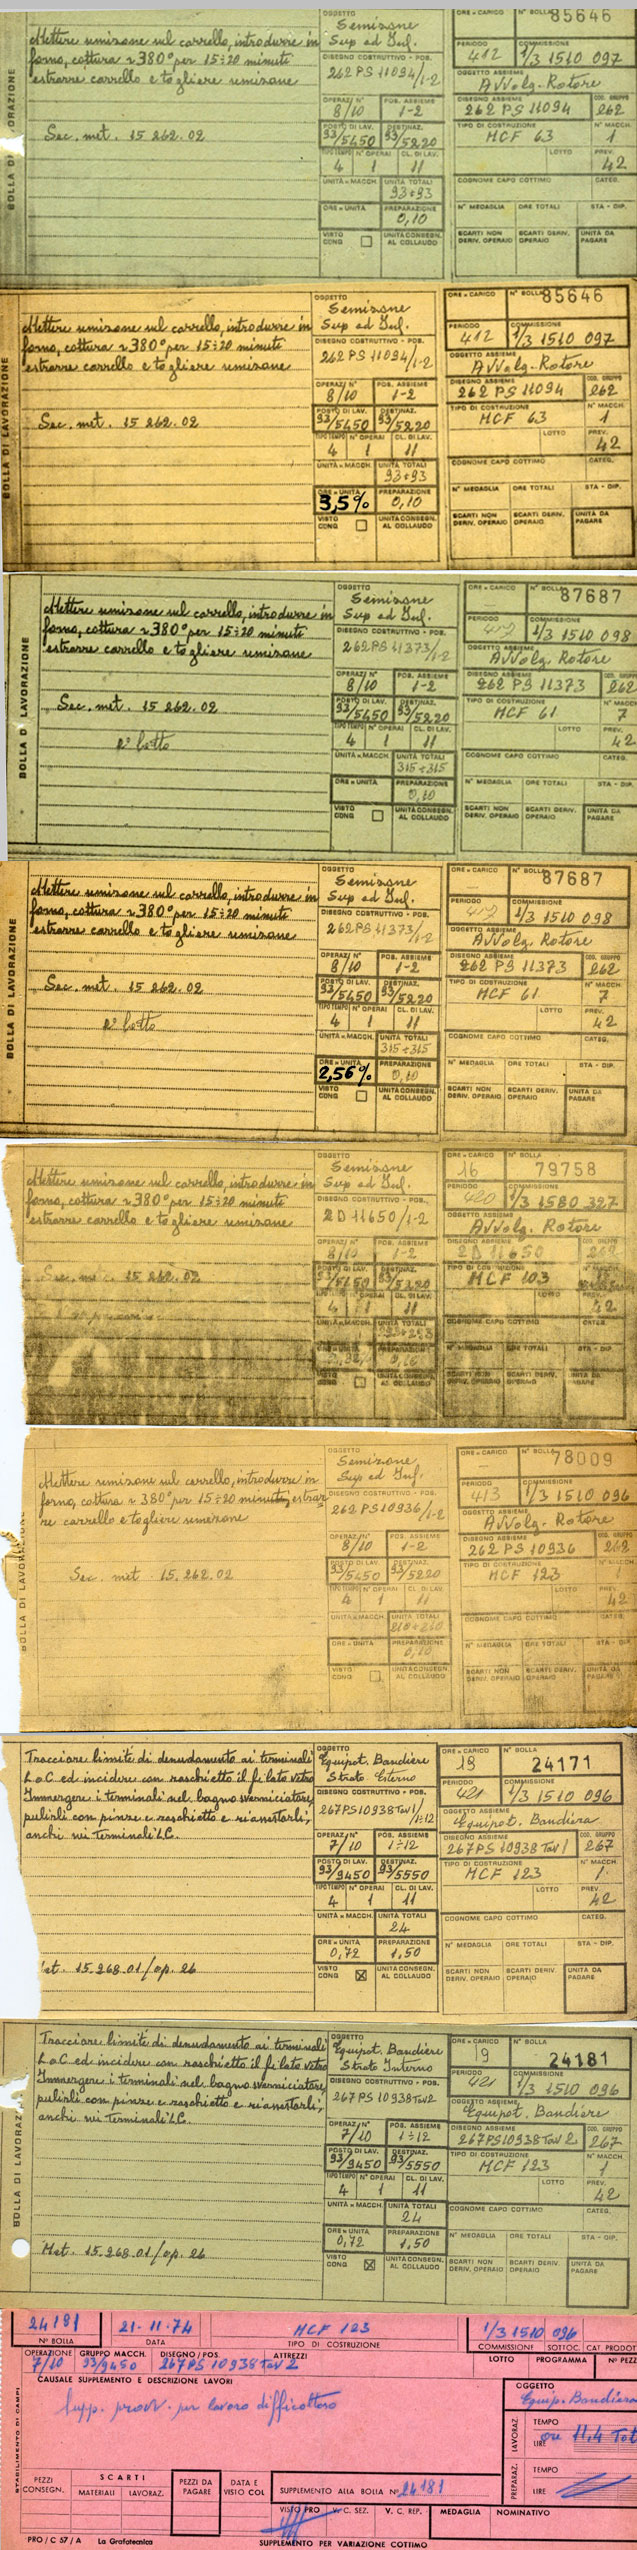 BOLLA DI LAVORAZIONE
Mettere semizone sul carrello, introdurre in
forno, cottura ~380° per 15÷20 minuti
estrarre carrello e togliere semizone
Sec. met. 15 262.02
Semizone
Sup ed Inf.
DISEGNO COSTRUTTIVO - POS.
262 PS 11094/1-2
OPERAZ. N° POS. ASSIEME
8/10 1-2
POSTO DI LAV. DESTINAZ.
93/5450 93/5220
TIPO TEMPO N° OPERAI CL. DI LAV.
4 1 11
UNITÀ × MACCH. UNITÀ TOTALI
93+93
ORE × UNITÀ PREPARAZIONE
0,10
VISTO CONQ UNITÀ CONSEGN. AL COLLAUDO
ORE - CARICO N° BOLLA
85646
PERIODO COMMISSIONE
412 1/3 1510 097
OGGETTO ASSIEME
Avvolg. Rotore
DISEGNO ASSIEME COD. GRUPPO
262 PS 11094 262
TIPO DI COSTRUZIONE N° MACCH.
MCF 63 1
LOTTO PREV.
42
COGNOME CAPO COTTIMO CATEG.
N° MEDAGLIA ORE TOTALI STA - DIP.
SCARTI NON DERIV. OPERAIO SCARTI DERIV. OPERAIO UNITÀ DA PAGARE
BOLLA DI LAVORAZIONE
Mettere semizone sul carrello, introdurre in
forno, cottura ~380° per 15÷20 minuti
estrarre carrello e togliere semizone
Sec. met. 15 262.02
OGGETTO
Semizone
Sup ed Inf.
DISEGNO COSTRUTTIVO - POS.
262 PS 11094/1-2
OPERAZ. N° POS. ASSIEME
8/10 1-2
POSTO DI LAV. DESTINAZ.
93/5450 93/5220
TIPO TEMPO N° OPERAI CL. DI LAV.
4 1 11
UNITÀ × MACCH. UNITÀ TOTALI
93+93
ORE × UNITÀ PREPARAZIONE
3,5% 0,10
VISTO CONQ UNITÀ CONSEGN. AL COLLAUDO
ORE - CARICO N° BOLLA
85646
PERIODO COMMISSIONE
412 1/3 1510 097
OGGETTO ASSIEME
Avvolg. Rotore
DISEGNO ASSIEME COD. GRUPPO
262 PS 11094 262
TIPO DI COSTRUZIONE N° MACCH.
MCF 63 1
LOTTO PREV.
42
COGNOME CAPO COTTIMO CATEG.
N° MEDAGLIA ORE TOTALI STA - DIP.
SCARTI NON DERIV. OPERAIO SCARTI DERIV. OPERAIO UNITÀ DA PAGARE
BOLLA DI LAVORAZIONE
Mettere semizone sul carrello, introdurre in
forno, cottura ~380° per 15÷20 minuti
estrarre carrello e togliere semizone
Sec. met. 15 262.02
2° lotto
OGGETTO
Semizone
Sup ed Inf.
DISEGNO COSTRUTTIVO - POS.
262 PS 11373/1-2
OPERAZ. N° POS. ASSIEME
8/10 1-2
POSTO DI LAV. DESTINAZ.
93/5450 93/5220
TIPO TEMPO N° OPERAI CL. DI LAV.
4 1 11
UNITÀ × MACCH. UNITÀ TOTALI
315+315
ORE × UNITÀ PREPARAZIONE
0,10
VISTO CONQ UNITÀ CONSEGN. AL COLLAUDO
ORE - CARICO N° BOLLA
87687
PERIODO COMMISSIONE
1/3 1510 098
OGGETTO ASSIEME
Avvolg. Rotore
DISEGNO ASSIEME COD. GRUPPO
262 PS 11373 262
TIPO DI COSTRUZIONE N° MACCH.
MCF 61 7
LOTTO PREV.
42
COGNOME CAPO COTTIMO CATEG.
N° MEDAGLIA ORE TOTALI STA - DIP.
SCARTI NON DERIV. OPERAIO SCARTI DERIV. OPERAIO UNITÀ DA PAGARE
BOLLA DI LAVORAZIONE
Mettere semizone sul carrello, introdurre in
forno, cottura ~380° per 15÷20 minuti
estrarre carrello e togliere semizone
Sec. met. 15 262.02
2° lotto
OGGETTO
Semizone
Sup ed Inf.
DISEGNO COSTRUTTIVO - POS.
262 PS 11373/1-2
OPERAZ. N° POS. ASSIEME
8/10 1-2
POSTO DI LAV. DESTINAZ.
93/5450 93/5220
TIPO TEMPO N° OPERAI CL. DI LAV.
4 1 11
UNITÀ × MACCH. UNITÀ TOTALI
315+315
ORE × UNITÀ PREPARAZIONE
2,56% 0,10
VISTO CONQ UNITÀ CONSEGN. AL COLLAUDO
ORE - CARICO N° BOLLA
87687
PERIODO COMMISSIONE
1/3 1510 098
OGGETTO ASSIEME
Avvolg. Rotore
DISEGNO ASSIEME COD. GRUPPO
262 PS 11373 262
TIPO DI COSTRUZIONE N° MACCH.
MCF 61 7
LOTTO PREV.
42
COGNOME CAPO COTTIMO CATEG.
N° MEDAGLIA ORE TOTALI STA - DIP.
SCARTI NON DERIV. OPERAIO SCARTI DERIV. OPERAIO UNITÀ DA PAGARE
Mettere semizone sul carrello, introdurre in
forno, cottura ~380° per 15÷20 minuti
estrarre carrello e togliere semizone
Sec. met. 15 262.02
OGGETTO
Semizone
Sup ed Inf.
DISEGNO COSTRUTTIVO - POS.
2D 11650/1-2
OPERAZ. N° POS. ASSIEME
8/10 1-2
93/5450 93/5220
4 1 11
UNITÀ TOTALI
ORE - CARICO N° BOLLA
16 79758
PERIODO COMMISSIONE
420 1/3 1580 327
OGGETTO ASSIEME
Avvolg. Rotore
DISEGNO ASSIEME
2D 11650 262
TIPO DI COSTRUZIONE
MCF 103
42
COGNOME CAPO COTTIMO CATEG.
ORE TOTALI STA - DIP.
BOLLA DI LAVORAZIONE
Mettere semizone sul carrello, introdurre in
forno, cottura ~ 380° per 15÷20 minuti, estrar
re carrello e togliere semizone
Sec. met. 15.262.02
OGGETTO
Semizone
Sup ed Inf.
DISEGNO COSTRUTTIVO - POS.
262 PS 10936/1-2
OPERAZ. N° POS. ASSIEME
8/10 1-2
POSTO DI LAV. DESTINAZ.
93/5450 93/5220
TIPO TEMPO N° OPERAI CL. DI LAV.
4 1 11
UNITÀ × MACCH. UNITÀ TOTALI
210+210
ORE × UNITÀ PREPARAZIONE
0,10
VISTO CONQ UNITÀ CONSEGN. AL COLLAUDO
ORE - CARICO N° BOLLA
78009
PERIODO COMMISSIONE
413 1/3 1510 096
OGGETTO ASSIEME
Avvolg. Rotore
DISEGNO ASSIEME COD. GRUPPO
262 PS 10936 262
TIPO DI COSTRUZIONE N° MACCH.
MCF 123 1
LOTTO PREV.
42
COGNOME CAPO COTTIMO CATEG.
N° MEDAGLIA ORE TOTALI STA - DIP.
SCARTI NON DERIV. OPERAIO SCARTI DERIV. OPERAIO UNITÀ DA PAGARE
Tracciare limite di denudamento ai terminali
L o C ed incidere con raschietto il filato vetro
Immergere i terminali nel bagno sverniciatore,
pulirli con pinze e raschietto e riansetarli,
anchi nei Terminali L C.
et. 15.268.01/op. 26
OGGETTO
Equipot. Bandiere
Strato Esterno
DISEGNO COSTRUTTIVO - POS.
267PS10938 Tav 1/1÷12
OPERAZ. N° POS. ASSIEME
7/10 1÷12
POSTO DI LAV. DESTINAZ.
93/9450 93/5550
TIPO TEMPO N° OPERAI CL. DI LAV.
4 1 11
UNITÀ × MACCH. UNITÀ TOTALI
24
ORE × UNITÀ PREPARAZIONE
0,72 1,50
VISTO CONQ UNITÀ CONSEGN. AL COLLAUDO
ORE - CARICO N° BOLLA
19 24171
PERIODO COMMISSIONE
421 1/3 1510 096
OGGETTO ASSIEME
Equipot. Bandiera
DISEGNO ASSIEME COD. GRUPPO
267PS10938 Tav 1 267
TIPO DI COSTRUZIONE N° MACCH.
MCF 123 1
LOTTO PREV.
42
COGNOME CAPO COTTIMO CATEG.
N° MEDAGLIA ORE TOTALI STA - DIP.
SCARTI NON DERIV. OPERAIO SCARTI DERIV. OPERAIO UNITÀ DA PAGARE
BOLLA DI LAVORAZ
Tracciare limite di denudamento ai terminali
L o C ed incidere con raschietto il filato vetro
Immergere i terminali nel bagno sverniciatore,
pulirli con pinze e raschietto e riansetarli,
anchi nei Terminali L C.
Met. 15.268.01/op. 26
OGGETTO
Equipot. Bandiere
Strato Interno
DISEGNO COSTRUTTIVO - POS.
267 PS 10938 Tav 2
OPERAZ. N° POS. ASSIEME
7/10 1÷12
POSTO DI LAV. DESTINAZ.
93/9450 93/5550
TIPO TEMPO N° OPERAI CL. DI LAV.
4 1 11
UNITÀ × MACCH. UNITÀ TOTALI
24
ORE × UNITÀ PREPARAZIONE
0,72 1,50
VISTO CONQ UNITÀ CONSEGN. AL COLLAUDO
ORE - CARICO N° BOLLA
19 24181
PERIODO COMMISSIONE
421 1/3 1510 096
OGGETTO ASSIEME
Equipot. Bandiera
DISEGNO ASSIEME COD. GRUPPO
267PS10938 Tav 2 267
TIPO DI COSTRUZIONE N° MACCH.
MCF 123 1
LOTTO PREV.
42
COGNOME CAPO COTTIMO CATEG.
N° MEDAGLIA ORE TOTALI STA - DIP.
SCARTI NON DERIV. OPERAIO SCARTI DERIV. OPERAIO UNITÀ DA PAGARE
24181 21-11-74 MCF 123 1/3 1510 096
N° BOLLA DATA TIPO DI COSTRUZIONE COMMISSIONE SOTTOC. CAT PRODOT
OPERAZIONE GRUPPO MACCH. DISEGNO / POS. ATTREZZI LOTTO PROGRAMMA N° PEZZ
7/10 93/9450 267 PS 10938 Tav 2
CAUSALE SUPPLEMENTO E DESCRIZIONE LAVORI
Supp. provv. per lavoro difficoltoso
OGGETTO
Equip. Bandiera
LAVORAZ. TEMPO ore 11,4 Tot
LIRE
PREPARAZ. TEMPO
LIRE
STABILIMENTO DI CAMPI
PEZZI CONSEGN. SCARTI MATERIALI LAVORAZ. PEZZI DA PAGARE DATA E VISTO COL
SUPPLEMENTO ALLA BOLLA N° 24181
VISTO PRO V. C. SEZ. V. C. REP. MEDAGLIA NOMINATIVO
PRO / C 57 / A La Grafotecnica SUPPLEMENTO PER VARIAZIONE COTTIMO